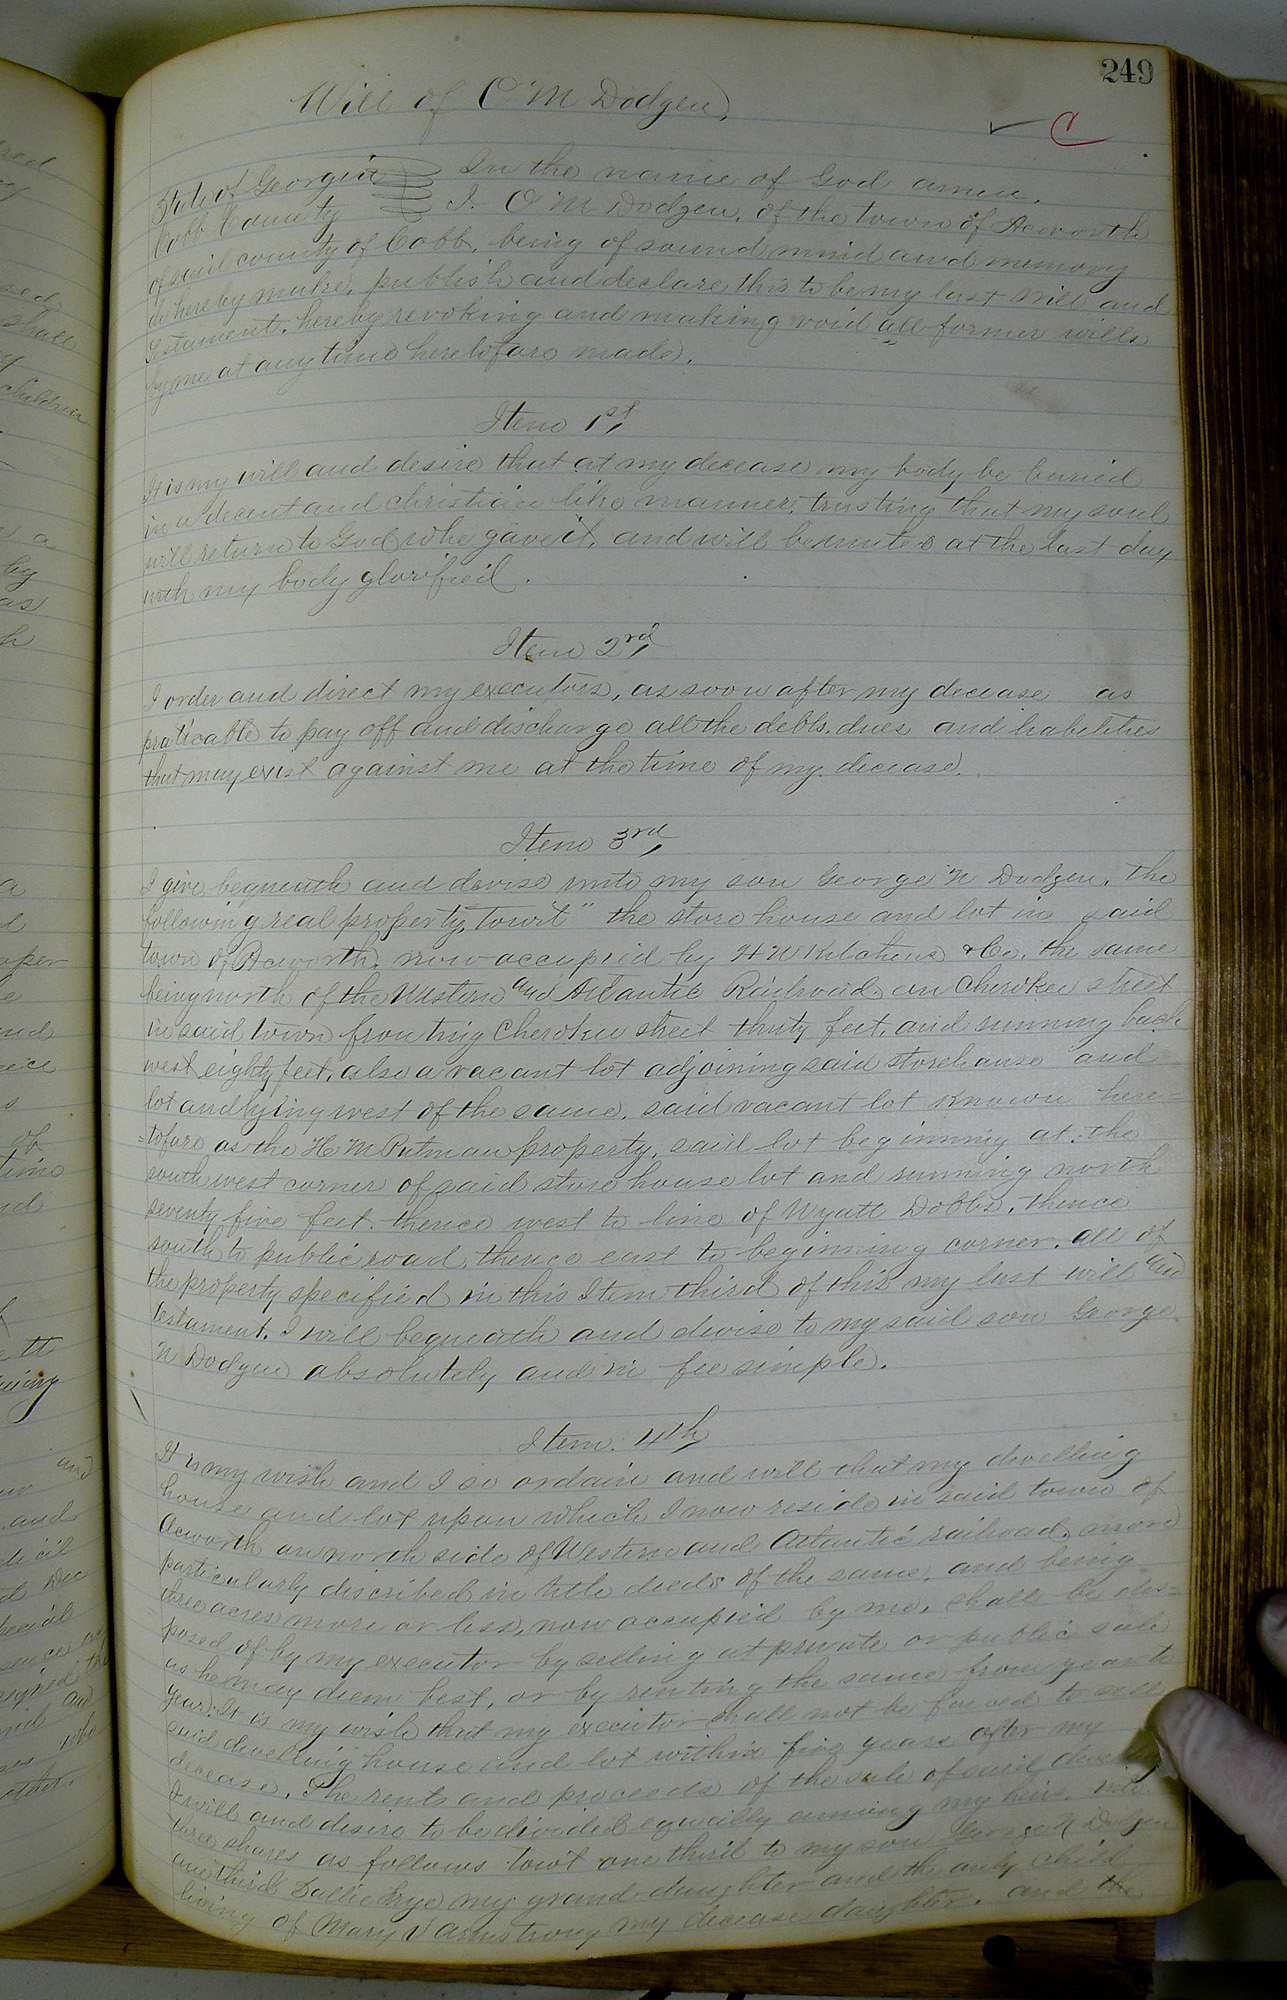 249
Will of O M Dodgen,
State of Georgia In the name of God amen.
Cobb County I. O M Dodgen, of the town of Acworth
of said county of Cobb, being of sound mind and memory
do hereby make, publish and declare this to be my last Will and
Testament. hereby revoking and making void all former wills
by me at any time heretofore made.
Item 1st,
It is my will and desire that at my decease my body be buried
in a decent and christian like manner, trusting that my soul
will return to God who gave it, and will be united at the last day
with my body glorified.
Item 2rd,
I order and direct my executors, as soon after my decease as
praticable to pay off and discharge all the debts, dues and liabilities
that may exist against me at the time of my decease.
Item 3rd,
I give bequeath and devise unto my son George N Dodgen, the
following real property, towit" the store house and lot in said
town of Acworth, now occupied by H W Kitchens & Co, the same
being north of the Western and Atlantic Railroad, on Cherokee street
in said town fronting Cherokee street thirty feet, and running back
west eighty feet, also a vacant lot adjoining said storehouse and
lot and lying west of the same, said vacant lot known here=
=tofore as the H M Putman property, said lot beginning at the
south west corner of said store house lot and running north
seventy five feet. thence west to line of Wyatt Dobbs, thence
south to public road, thence east to beginning corner. all of
the property specified in this Item third of this my last will and
testament. I will bequeath and devise to my said son George
N Dodgen absolutely and in fee simple.
Item. 4th,
It is my wish and I so ordain and will that my dwelling
house and lot upon which I now reside in said town of
Acworth on north side of Western and Atlantic railroad, more
particularly discribed in title deeds of the same, and being
three acres more or less, now occupied by me, shall be dis=
posed of by my executor by selling at private or public sale
as he may deem best, or by renting the same from year to
year; It is my wish that my executor shall not be forced to sell
said dwelling house and lot within five years after my
decease. The rents and proceeds of the sale of said dwelling
I will and desire to be divided equally among my heirs. into
three shares as follows towit one third to my son George N Dodgen
one third Sallie Frye my grand daughter and the only child
living of Mary V Armstrong my decease daughter. and the